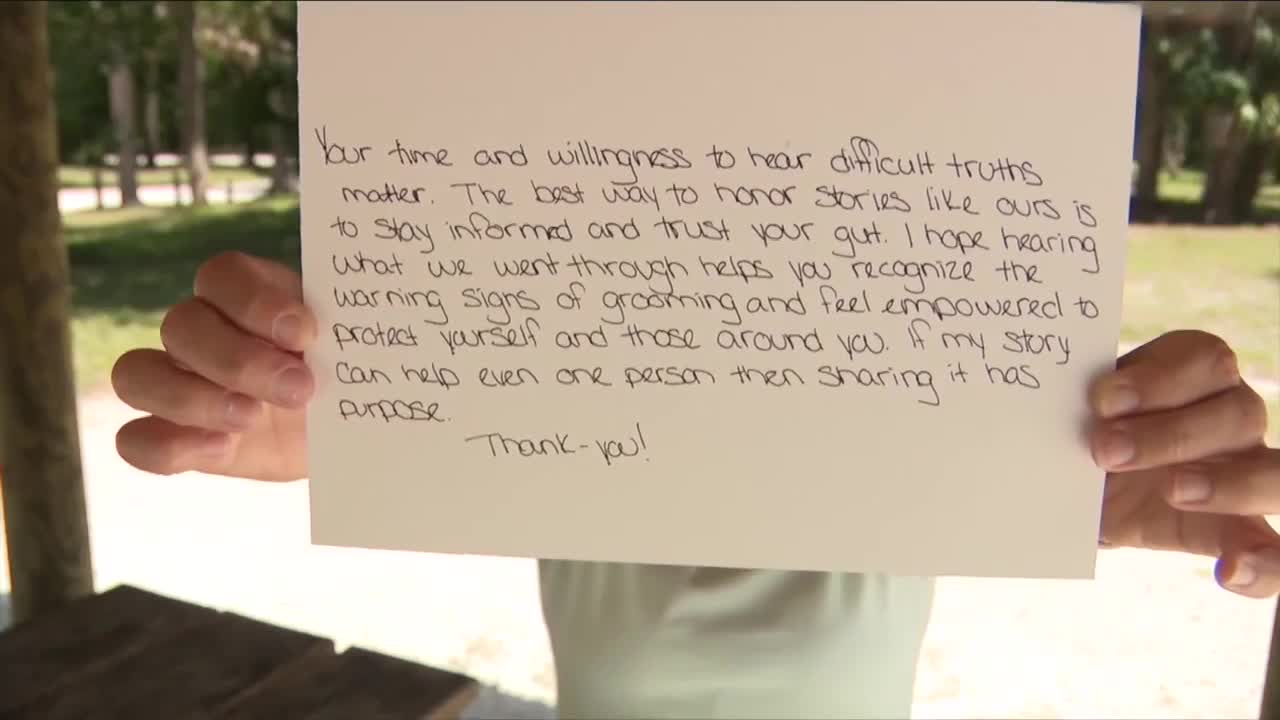 Your time and willingness to hear difficult truths
matter. The best way to honor stories like ours is
to stay informed and trust your gut. I hope hearing
what we went through helps you recognize the
warning signs of grooming and feel empowered to
protect yourself and those around you. If my story
can help even one person then sharing it has
purpose.
Thank-you!